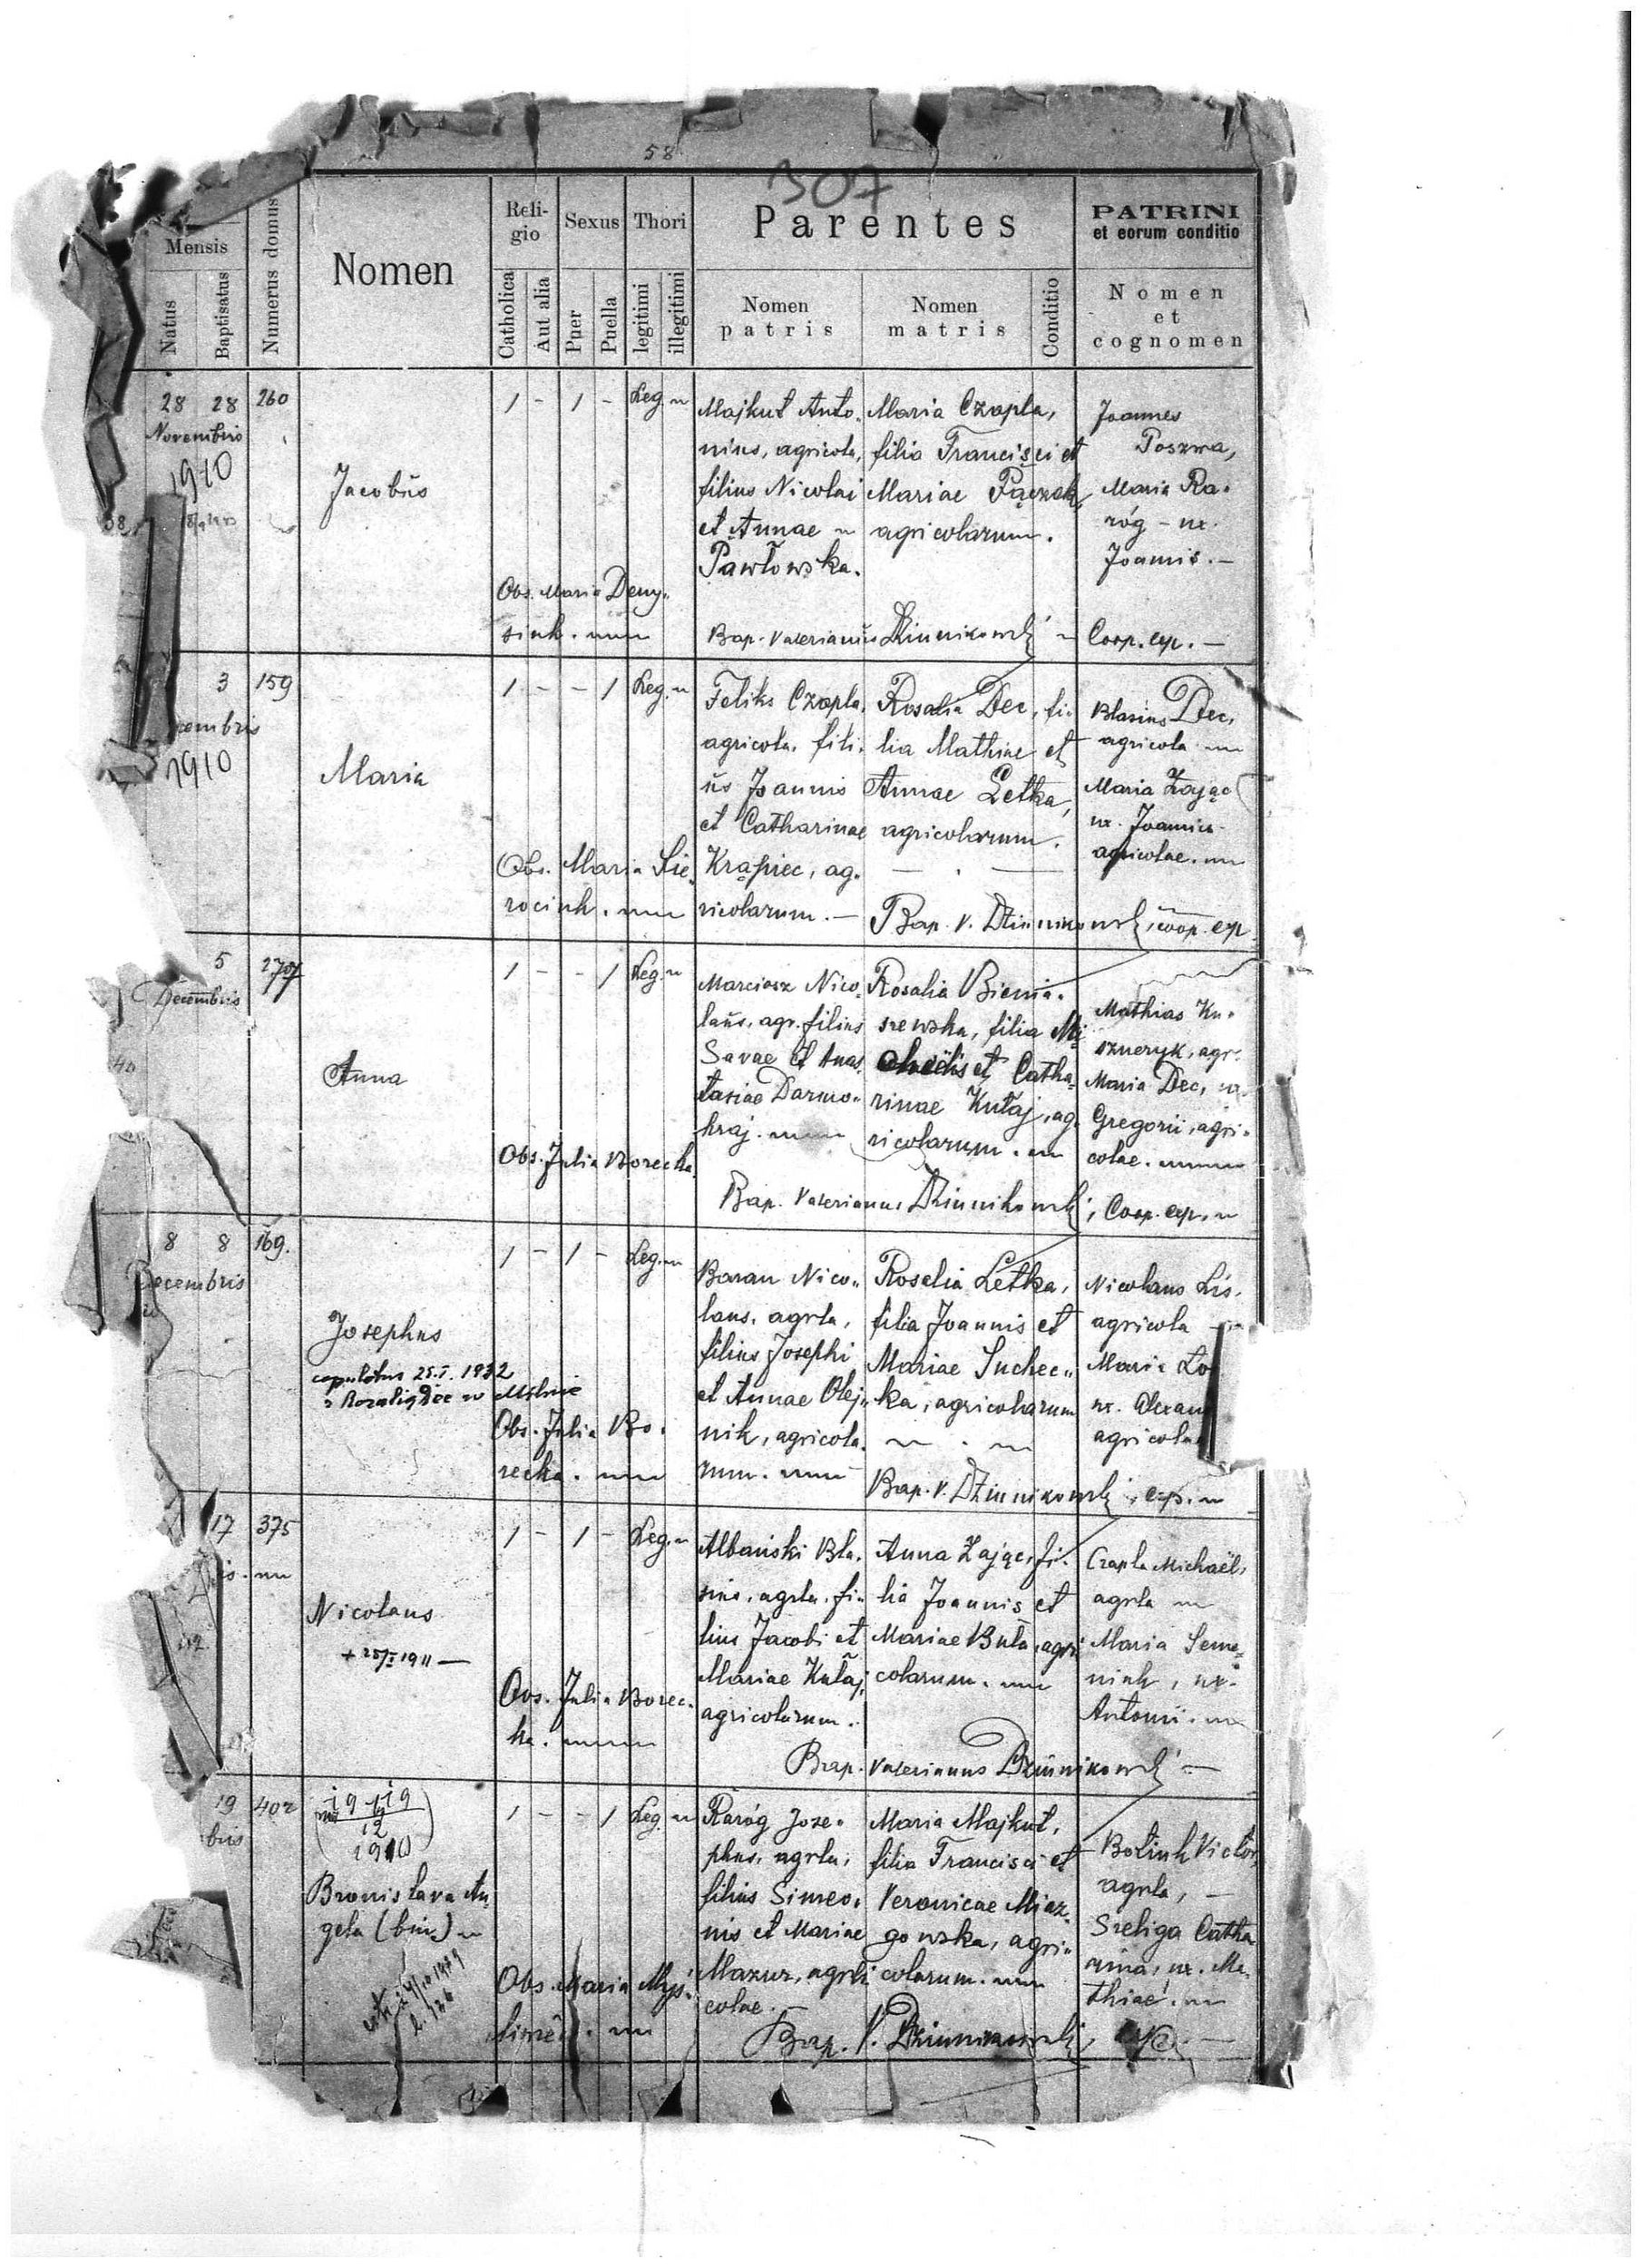 58
307
Mensis
Natus
Baptisatus
Numerus domus
Nomen
Reli-
gio
Catholica
Aut alia
Sexus
Puer
Puella
Thori
legitimi
illegitimi
Parentes
Nomen
patris
Nomen
matris
Conditio
PATRINI
et eorum conditio
Nomen
et
cognomen
28 28 260
Novembris
1910
Jacobŭs
1 - 1 - Leg.
Obs. Maria Deny-
siuk.
Majkut Anto-
nius, agricola,
filius Nicolai
et Annae
Pawłowska.
Maria Czapla,
filia Francisci et
Mariae Pączek,
agricolarum.
Joannes
Poszwa,
Maria Ra-
róg - ux.
Joannis. -
Bap. Valerianŭs Dziunikowski Coop. exp. -
3 159
cembris
1910
Maria
1 - - 1 Leg.
Obs. Maria Sie-
rociuk.
Feliks Czapla,
agricola, fili-
ŭs Joannis
et Catharinae
Krąpiec, ag-
ricolarum. -
Rosalia Dec, fi-
lia Mathiae et
Annae Letka,
agricolarum.
Blasius Dec,
agricola
Maria Zając
ux. Joannis
agricolae.
Bap. V. Dziunikowski, coop. exp.
5 270
Decembris
Anna
1 - - 1 Leg.
Obs. Julia Borecka
Marciasz Nico-
laŭs, agr. filius
Savae et Anas-
tasiae Darmo-
hraj.
Rosalia Bienia-
szewska, filia Mi-
chaëlis et Catha-
rinae Kułaj, ag-
ricolarum.
Mathias Ku-
szneryk, agr.
Maria Dec, ux.
Gregorii, agri-
colae.
Bap. Valerianus Dziunikowski, Coop. exp.
8 8 169.
Decembris
Josephus
copulatus 25.I. 1932
z Rozalią Dec w Milnie
1 - 1 - Leg.
Obs. Julia Bo-
recka.
Baran Nico-
laus, agrla,
filius Josephi
et Annae Olej-
nik, agricola-
rum.
Rosalia Letka,
filia Joannis et
Mariae Suchec-
ka, agricolarum
Nicolaus Lis,
agricola
Maria Lo
ux. Alexan
agricola
Bap. V. Dziunikowski, exp.
17 375
Nicolaus
+ 1911 -
1 - 1 - Leg.
Obs. Julia Borec-
ka.
Albański Bla-
sius, agrla, fi-
lius Jacobi et
Mariae Kułaj,
agricolarum.
Anna Zając, fi-
lia Joannis et
Mariae Buła, agri
colarum.
Czapla Michaël,
agrla
Maria Seme-
niuk, ux.
Antonii.
Bap. Valerianus Dziunikowski -
19 402
bris
19-19
12
1910
Bronislava An-
gela (bin.)
1 - - 1 Leg.
Obs. Maria Myś-
Raróg Jose-
phus, agrla,
filius Simeo-
nis et Mariae
Mazur, agri
colae.
Maria Majkut,
filia Francisci et
Veronicae Miaz-
gowska, agri-
colarum.
Botiuk Victor,
agrla, -
Sreliga Catha
rina, ux. Ma-
thiae.
Bap. V. Dziunikowski,